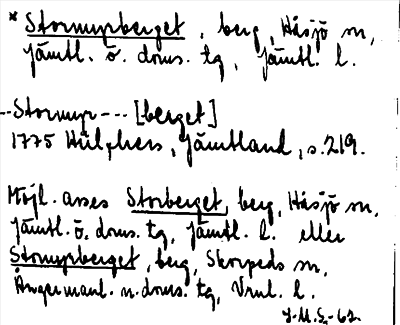 * Stormyrberget, berg, Hässjö sn,
Jämtl. ö. doms. tg, Jämtl. l.
--Stormyr--- [berget]
1775 Hülphers, Jämtland, s. 219.
Möjl. avses Storberget, berg, Hässjö sn,
Jämtl. ö. doms. tg, Jämtl. l. eller
Stormyrberget, berg, Skorpeds sn,
Ångermanl. n. doms. tg, Vnl. l.
J.M.S.-62.